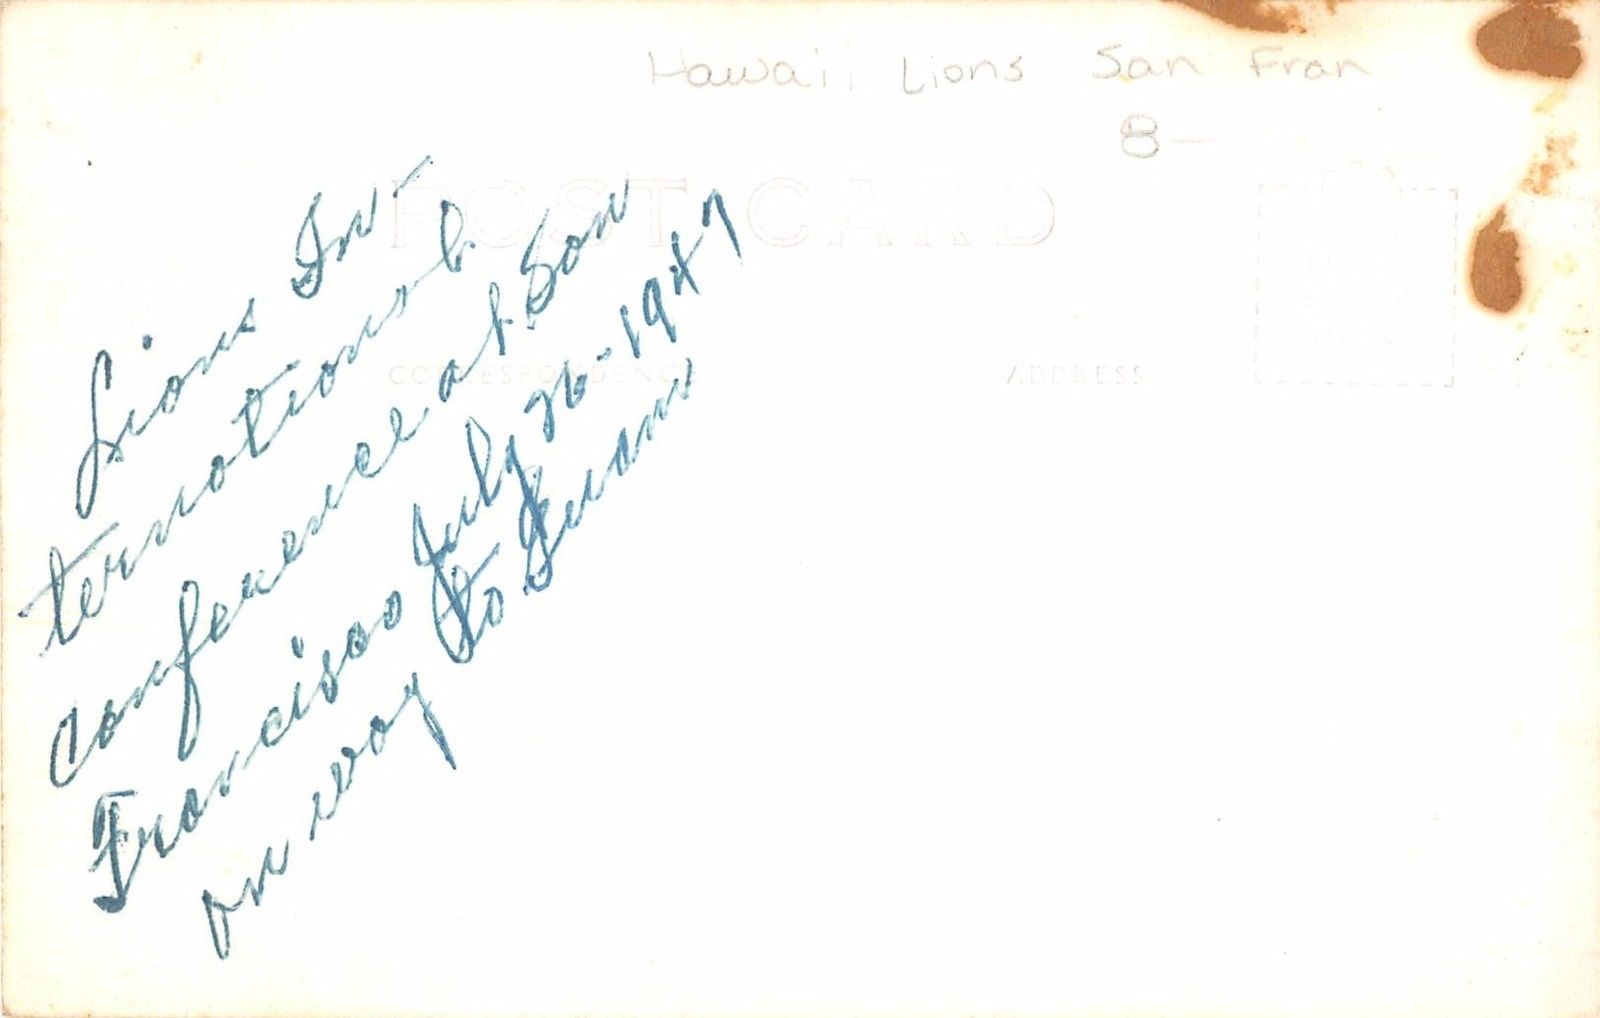 Hawaii Lions San Fran
8—
POST CARD
CORRESPONDENCE
ADDRESS
Lions In-
ternational
Conference at San
Francisco July 26-1947
on way to Guam